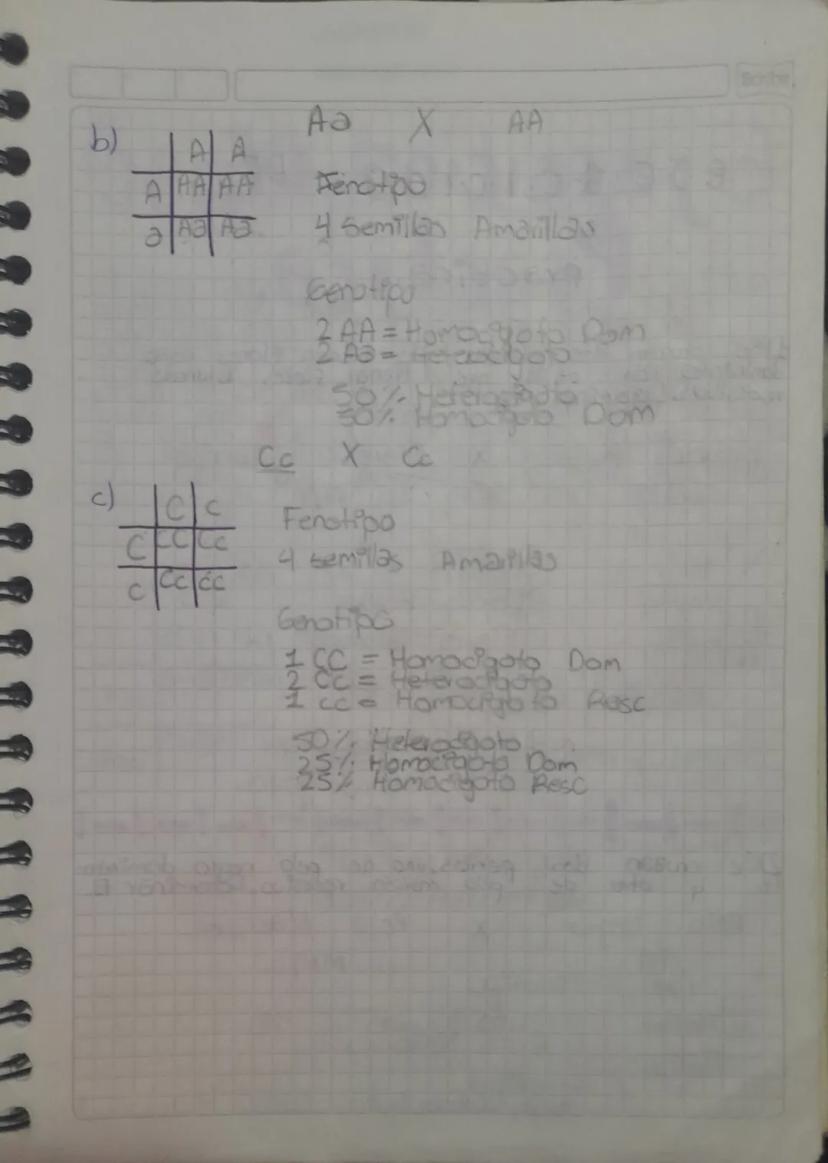 Aa X AA
b) A A
A AA AA
a Aa Aa
Fenotipo
4 Semillas Amarillas
Genotipo
2 AA = Homocigoto Dom
2 Aa = Heterocigoto
50% Heterocigoto
50% Homocigoto Dom
Cc X Cc
c) C c
C CC Cc
c Cc cc
Fenotipo
4 semillas Amarillas
Genotipo
1 CC = Homocigoto Dom
2 Cc = Heterocigoto
1 cc = Homocigoto Resc
50% Heterocigoto
25% Homocigoto Dom
25% Homocigoto Resc